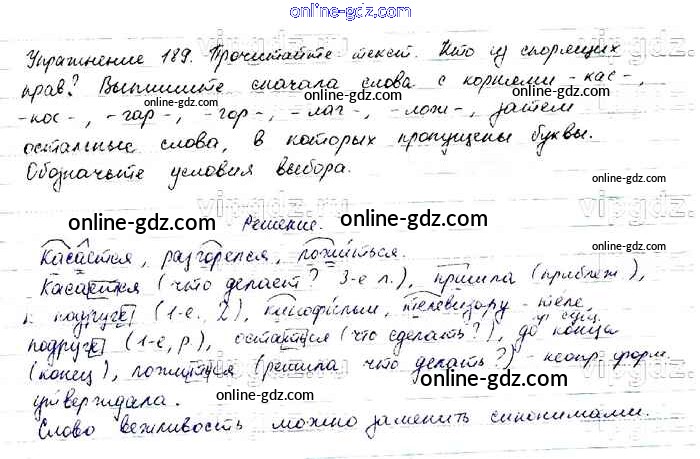 online-gdz.com
Упражнение 189. Прочитайте текст. Кто из спорящих
прав? Выпишите сначала слова с корнями -кас-,
online-gdz.com
online-gdz.com
-кос-, -гар-, -гор-, -лаг-, -лож-, затем
остальные слова, в которых пропущены буквы.
online-gdz.com
Обозначьте условия выбора.
online-gdz.com
online-gdz.com
Решение.
Касается, разгорелся, ложиться.
online-gdz.com
Касается (что делает? 3-е л.), пришла (приближ.),
к подруге (1-е, 2), кинофильм, телевизору - теле
online-gdz.com
online-gdz.com
подруге (1-е, р.), остаться (что сделать?), до конца
(конец), ложиться (решила что делать?) - неопр. форм.
online-gdz.com
online-gdz.com
утверждала.
Слово вежливость можно заменить синонимами.